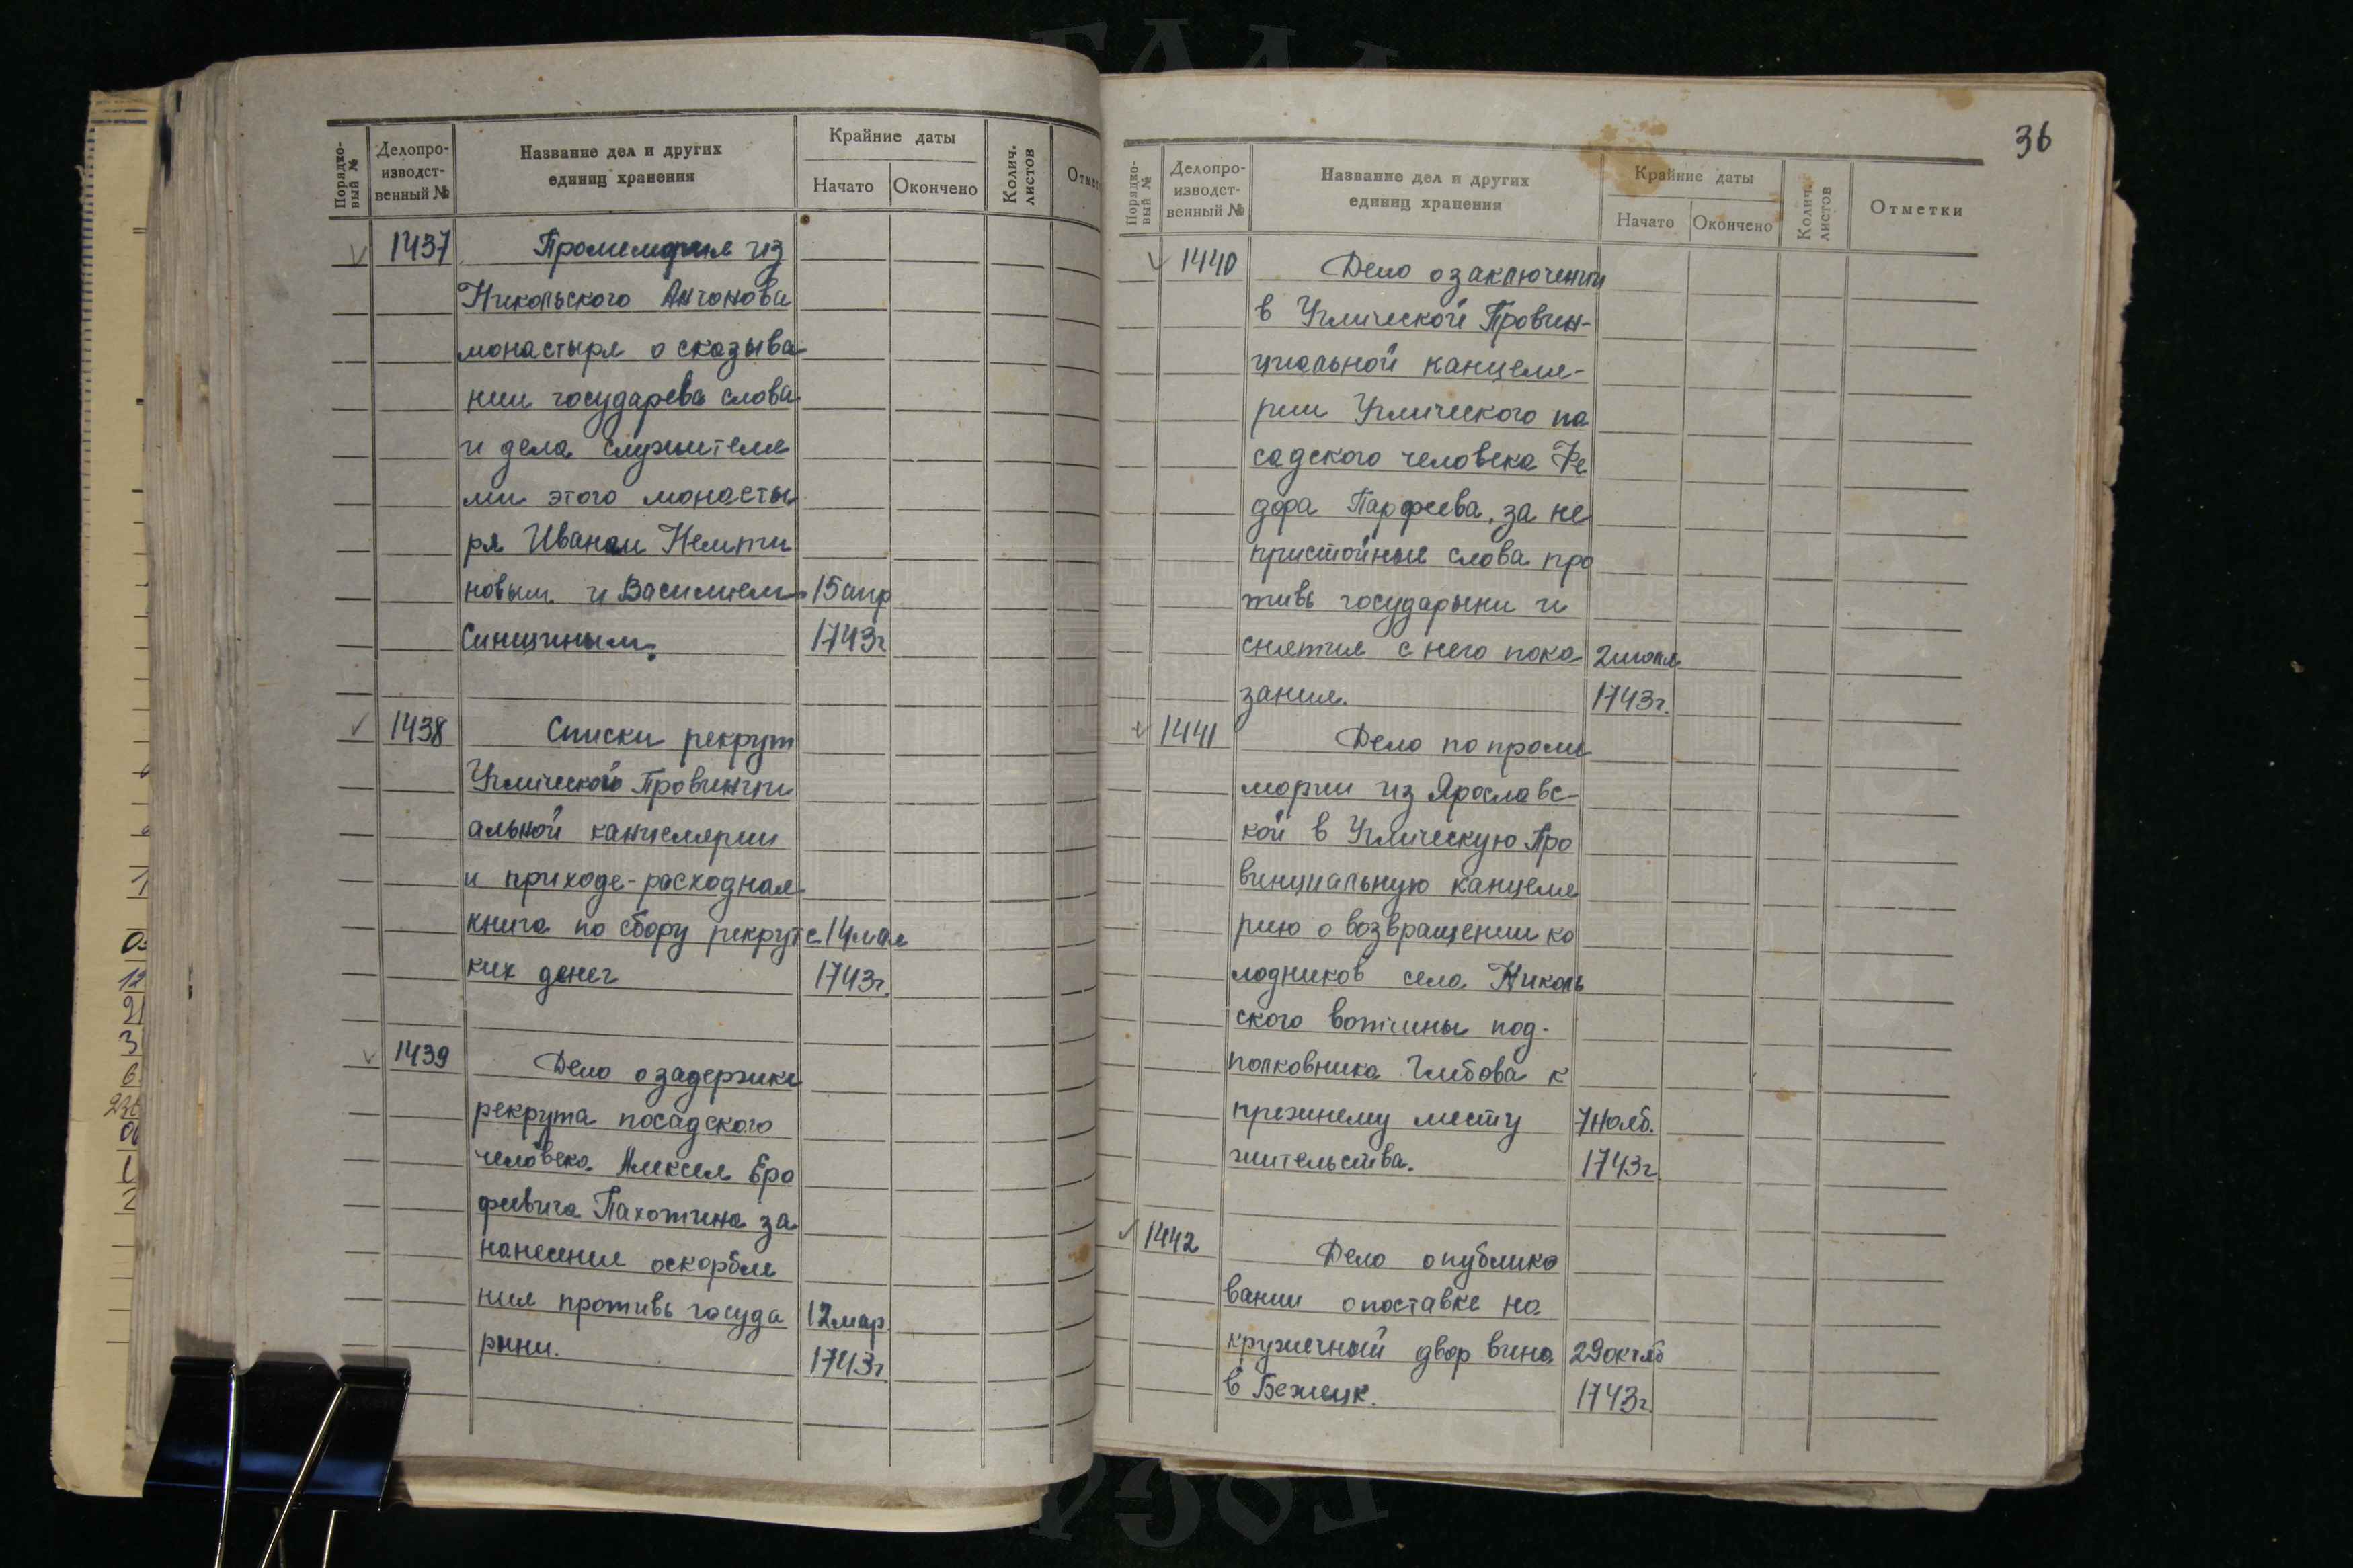 Порядко-
вый №
Делопро-
изводст-
венный №
Название дел и других
единиц хранения
Крайние даты
Начато
Окончено
Колич.
листов
Отмет
1437
Промемория из
Никольского Антонова
монастыря о сказыва
нии государева слова
и дела служителя
ми этого монасты
ря Иваном
новым и Василием 15 апр
1743г
1438
Списки рекрут
Угличской Провинци
альной канцелярии
и приходе-расходная
книга по сбору рекрутс 14 мая
ких денег 1743г.
1439
Дело о задержке
рекрута посадского
человека Алексея Еро
феевича Пахотина за
нанесение оскорбле
ния противь госуда 12 мар.
рыни. 1743г
36
Порядко-
вый №
Делопро-
изводст-
венный №
Название дел и других
единиц хранения
Крайние даты
Начато
Окончено
Колич.
листов
Отметки
1440
Дело о заключении
в Угличской Провин-
циальной канцеля-
рии Угличского по
садского человека Фе
дора Парфеева, за не
пристойные слова про
тивь государыни и
снятия с него пока 2 июля
зания. 1743г.
1441
Дело по проме
мории из Ярославс-
кой в Угличскую Про
винциальную канцеля
рию о возвращении ко
лодников села Николь
ского вотчины под-
полковника Глебова к
прежнему месту 7 нояб.
жительства. 1743г
1442
Дело о публико
вании о поставке на
кружечный двор вина 29 октяб
в Бежецк. 1743г.